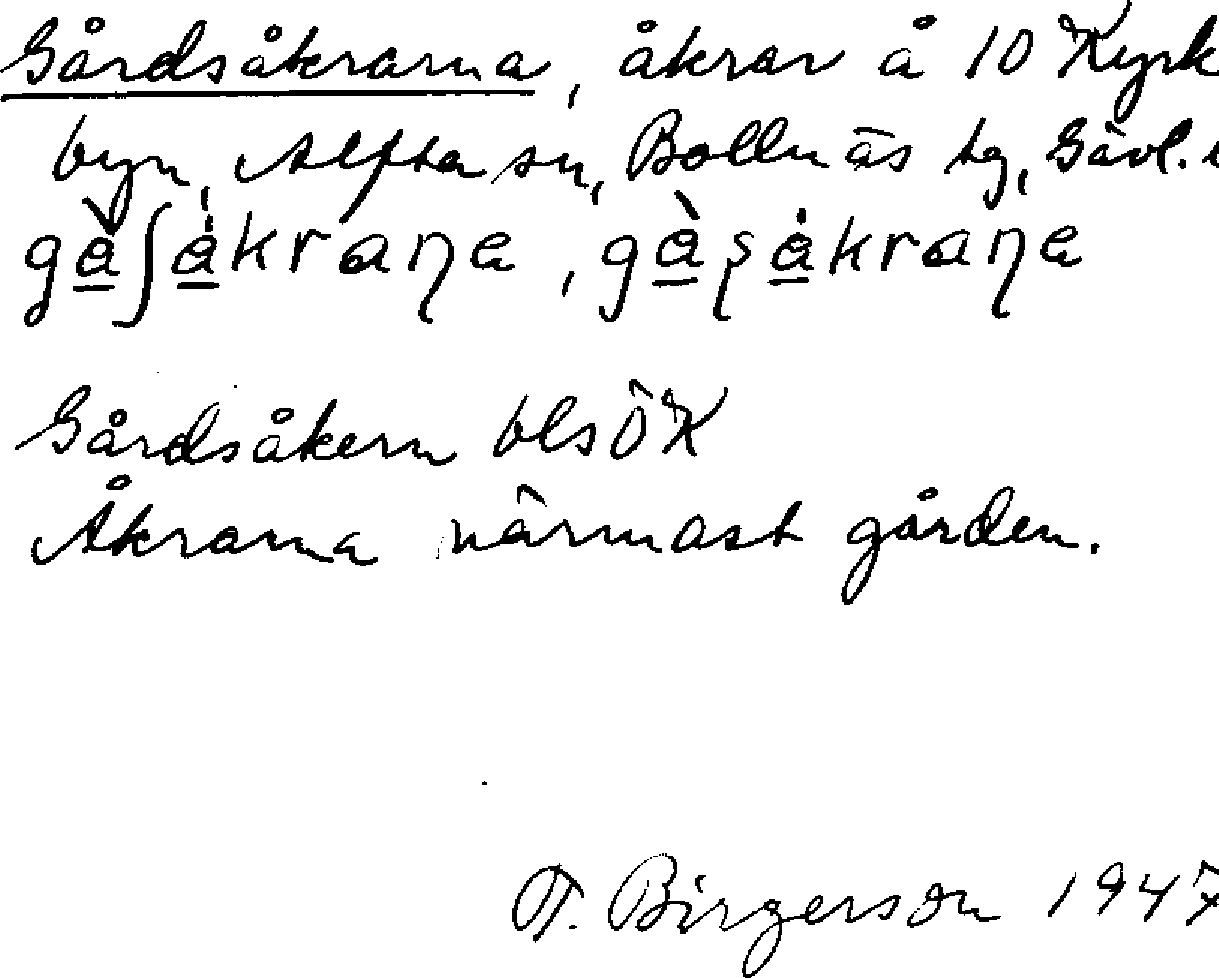 Gårdsåkrarna, åkrar å 10 Kyrk
byn, Alfta sn, Bollnäs tg, Gävl.
gå̀ʃåkraɳa, gå̀ʂåkraɳa
Gårdsåkern bls ÖK
Åkrarna närmast gården.
T. Birgerson 1947